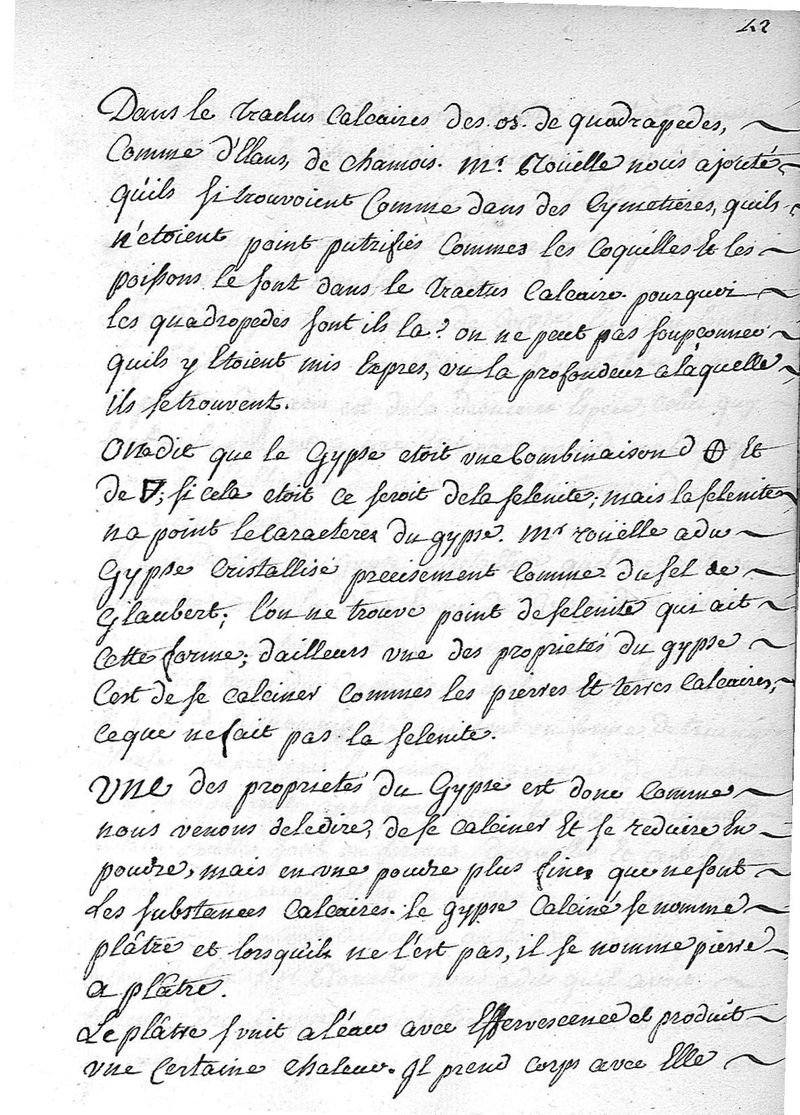 42
Dans le tractus calcaires des os de quadrapedes,
Comme d'Elans, de chamois. Mr. Roüelle nous ajouté
qu'ils si trouvoient Comme dans des Cymetières, quils
n'étoient point putrifiés Commes les Coquilles Et les
poissons le sont dans le tractus Calcaire. pourquoi
les quadropedes sont ils la? on ne peut pas soupçonner
quils y Etoient mis Expres, vu la profondeur a laquelle
ils se trouvent.
On a dit que le Gypse etoit une Combinaison d 🜨 Et
de 🜃; si cela etoit ce seroit de la selenite; mais la selenite
na point le Caracteres du gypse. Mr roüelle a du
Gypse Cristallisé precisement Comme du sel de
Glaubert; l'on ne trouve point de selenite qui ait
Cette forme; dailleurs une des proprietés du gypse
C'est de se calciner Commes les pierres Et terres Calcaires,
ce que ne fait pas la selenite.
Une des proprietés du Gypse est donc Comme
nous venons de le dire, de se calciner Et se reduire En
poudre, mais en une poudre plus fine que ne font
Les substances Calcaires. le gypse Calciné se nomme
plâtre et lorsquils ne l'est pas, il se nomme pierre
a plâtre.
Le plâtre s'unit a l'éau avec Effervescence et produit
une Certaine chaleur. Il prend corps avec Elle